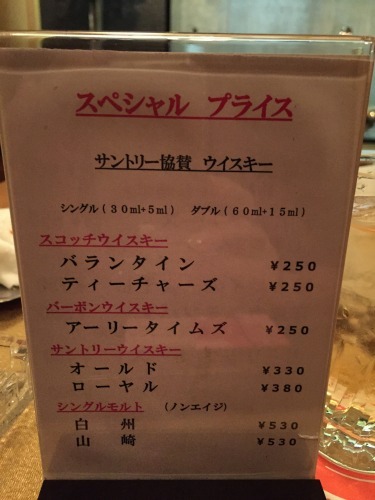 スペシャル プライス
サントリー協賛 ウイスキー
シングル(30ml+5ml) ダブル(60ml+15ml)
スコッチウイスキー
バランタイン ¥250
ティーチャーズ ¥250
バーボンウイスキー
アーリータイムズ ¥250
サントリーウイスキー
オールド ¥330
ローヤル ¥380
シングルモルト (ノンエイジ)
白州 ¥530
山崎 ¥530